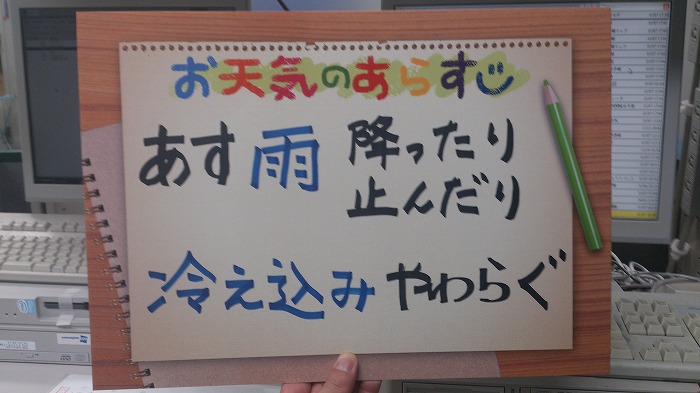 お天気のあらすじ
あす雨 降ったり
止んだり
冷え込みやわらぐ